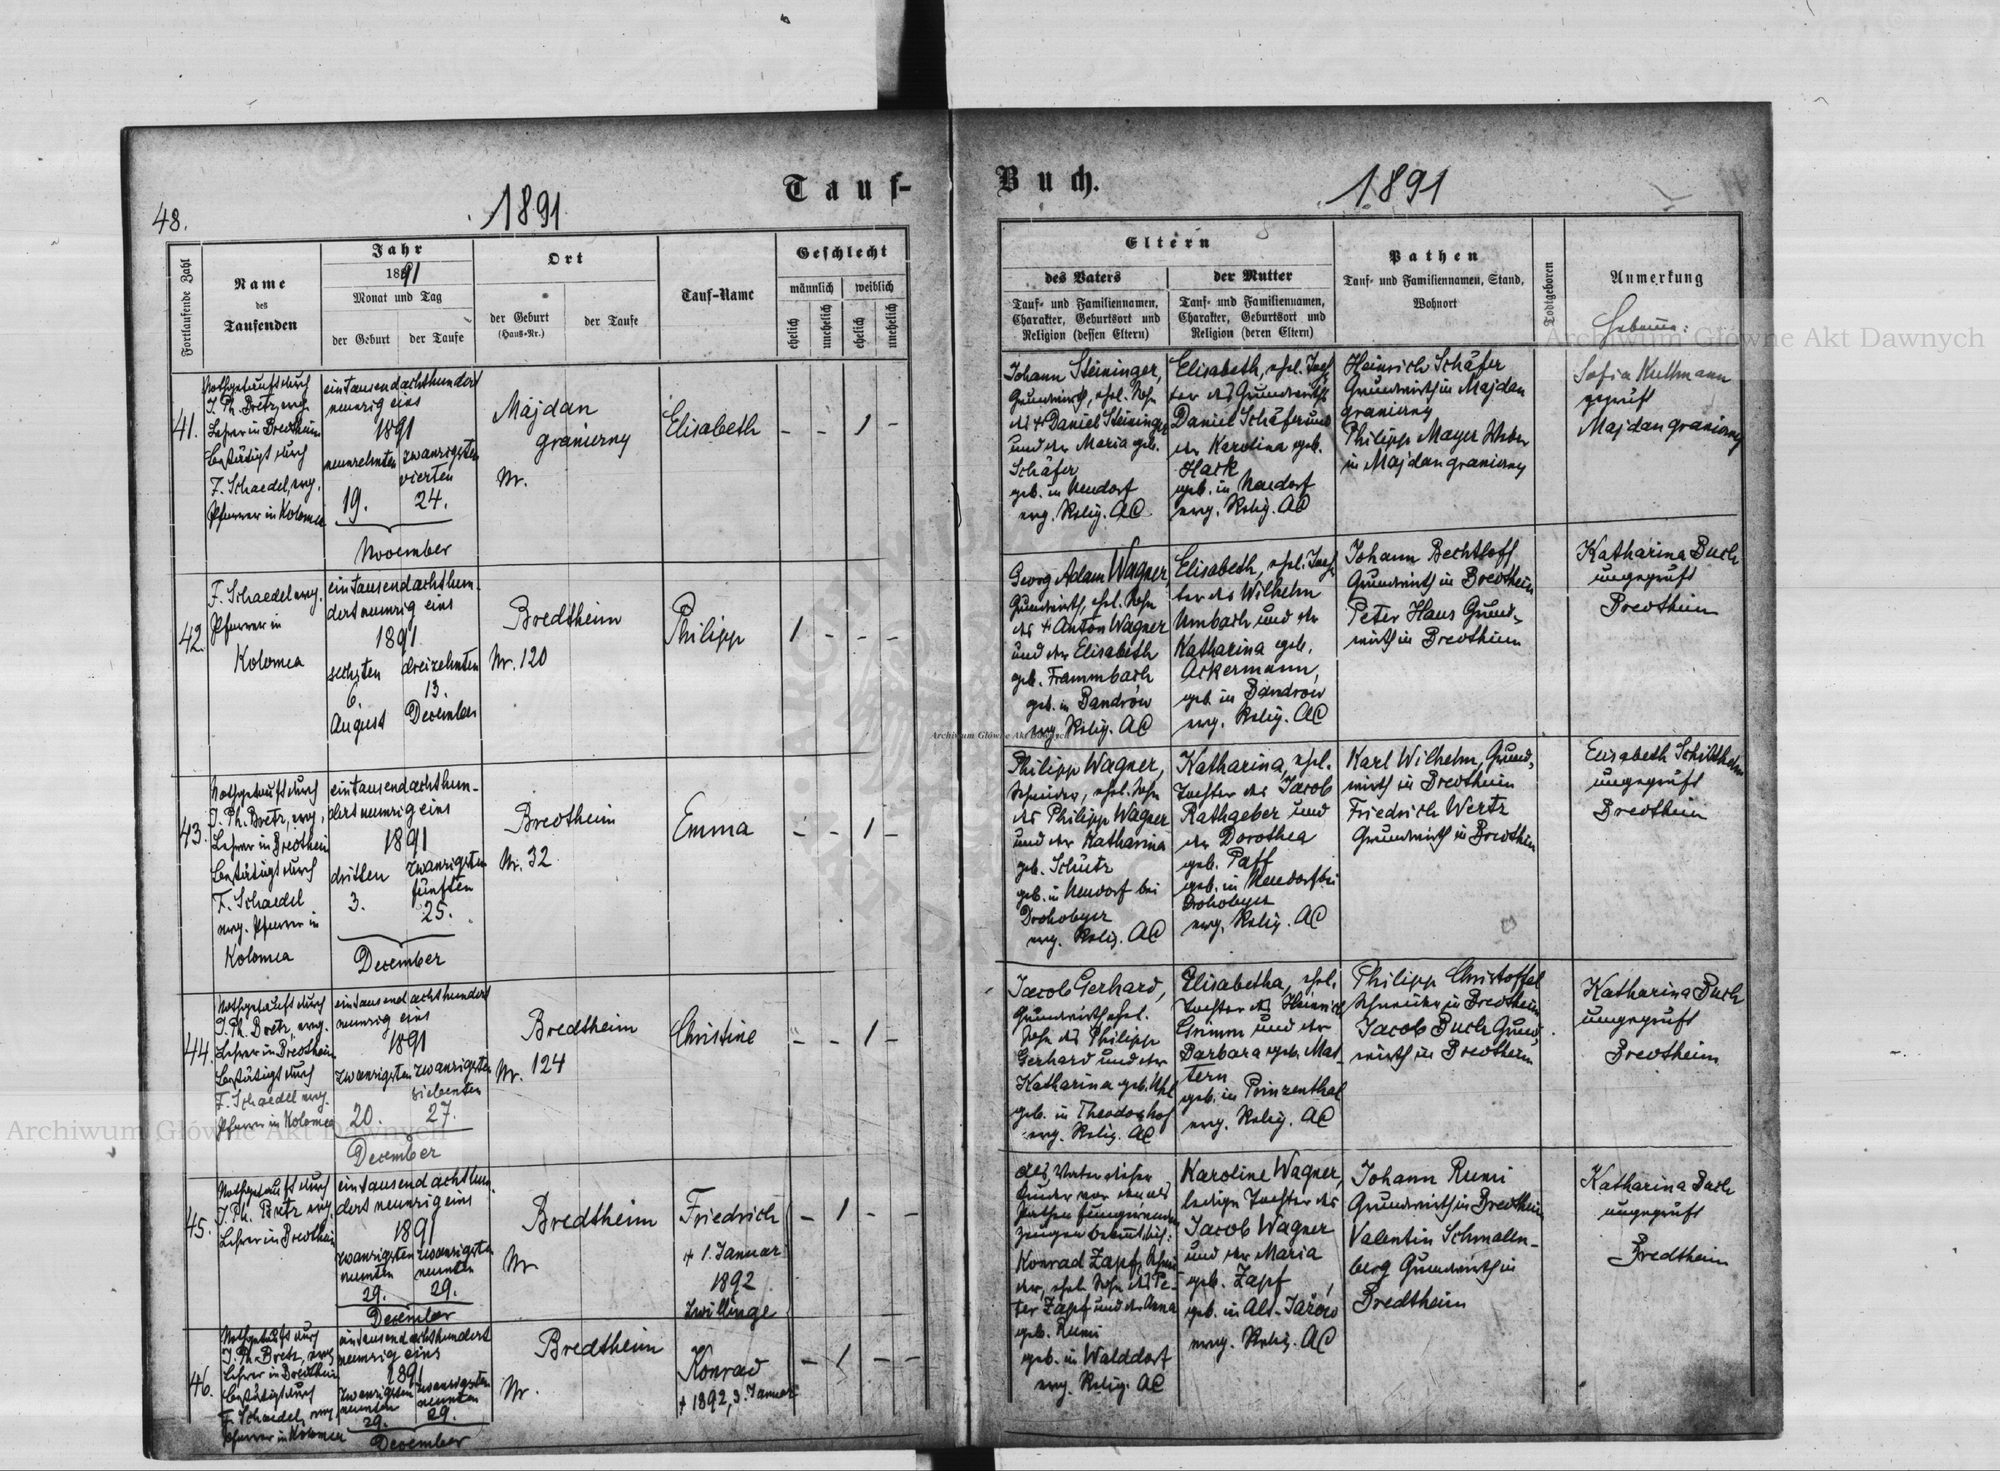 48.
1891
Tauf-
Fortlaufende Zahl
Name
des
Taufenden
Jahr
1891
Monat und Tag
der Geburt
der Taufe
Ort
der Geburt
(Haus-Nr.)
der Taufe
Tauf-Name
Geschlecht
männlich
weiblich
ehelich
unehelich
ehelich
unehelich
41.
Nothgetauft durch
J. Ph. Bretz, evg.
Lehrer in Bredtheim
bestätigt durch
F. Schaedel, evg.
Pfarrer in Kolomea
eintausendachthundert
neunzig eins
1891
neunzehnten
zwanzigsten
vierten
19.
24.
November
Majdan
graniczny
Nr.
Elisabeth
- - 1 -
42.
F. Schaedel evg.
Pfarrer in
Kolomea
eintausendachthun-
dertneunzig eins
1891
sechsten
dreizehnten
6.
13.
August
December
Bredtheim
Nr. 120
Philipp
1 - - -
43.
Nothgetauft durch
J. Ph. Bretz, evg.
Lehrer in Bredtheim
bestätigt durch
F. Schaedel
evg. Pfarrer in
Kolomea
eintausendachthun-
dertneunzig eins
1891
dritten
zwanzigsten
fünften
3.
25.
December
Bredtheim
Nr. 32
Emma
- - 1 -
44.
Nothgetauft durch
J. Ph. Bretz, evg.
Lehrer in Bredtheim
bestätigt durch
F. Schaedel evg.
Pfarrer in Kolomea
eintausendachthundert
neunzig eins
1891
zwanzigsten
zwanzigsten
siebenten
20.
27.
December
Bredtheim
Nr. 124
Christine
- - 1 -
45.
Nothgetauft durch
J. Ph. Bretz evg.
Lehrer in Bredtheim
eintausendachthun-
dertneunzig eins
1891
zwanzigsten
neunten
zwanzigsten
neunten
29.
29.
December
Bredtheim
Nr
Friedrich
+ 1. Januar
1892
Zwillinge
- 1 - -
46.
Nothgetauft durch
J. Ph. Bretz, evg.
Lehrer in Bredtheim
bestätigt durch
F. Schaedel, evg.
Pfarrer in Kolomea
eintausendachthundert
neunzig eins
1891
zwanzigsten
neunten
zwanzigsten
neunten
29.
29.
December
Bredtheim
Nr.
Konrad
+ 1892, 3. Januar
- 1 - -
Buch.
1891
Eltern
des Vaters
Tauf- und Familiennamen,
Charakter, Geburtsort und
Religion (dessen Eltern)
der Mutter
Tauf- und Familiennamen,
Charakter, Geburtsort und
Religion (deren Eltern)
Pathen
Tauf- und Familiennamen, Stand,
Wohnort
Todtgeboren
Anmerkung
Hebame:
Johann Steininger,
Grundwirth, ehel. Sohn
des + Daniel Steininger
und der Maria geb.
Schäfer
geb. in Neudorf
evg. Relig. AC
Elisabeth, ehel. Toch
ter des Grundwirths
Daniel Schäfer und
der Karolina geb.
Hack
geb. in Neudorf
evg. Relig. AC
Heinrich Schäfer
Grundwirth in Majdan
graniczny
Philipp Mayer Weber
in Majdan graniczny
Sofia Kullmann
geprüft
Majdan graniczny
Georg Adam Wagner,
Grundwirth, ehel. Sohn
des + Anton Wagner
und der Elisabeth
geb. Frammbach
geb. in Bandrów
evg. Relig. AC
Elisabeth, ehel. Toch
ter des Wilhelm
Umbach und der
Katharina geb.
Ackermann,
geb. in Bandrów
evg. Relig. AC
Johann Bechtloff
Grundwirth in Bredtheim
Peter Haus Grund-
wirth in Bredtheim
Katharina Buch
ungeprüft
Bredtheim
Philipp Wagner,
Schneider, ehel. Sohn
des Philipp Wagner
und der Katharina
geb. Schütz
geb. in Neudorf bei
Drohobycz
evg. Relig. AC
Katharina, ehel.
Tochter des Jacob
Rathgeber und
der Dorothea
geb. Paff
geb. in Neudorf bei
Drohobycz
evg. Relig. AC
Karl Wilhelm, Grund-
wirth in Bredtheim
Friedrich Wertz
Grundwirth in Bredtheim
Elisabeth
ungeprüft
Bredtheim
Jacob Gerhard,
Grundwirth ehel.
Sohn des Philipp
Gerhard und der
Katharina geb. Uhl
geb. in Theodorshof
evg. Relig. AC
Elisabetha, ehel.
Tochter des Heinrich
Grimm und der
Barbara geb. Mat-
tern
geb. in Prinzenthal
evg. Relig. AC
Philipp Christoffel
Schneider in Bredtheim
Jacob Buch Grund-
wirth in Bredtheim
Katharina Buch
ungeprüft
Bredtheim
Als Vater dieser
Kinder vor den als
Pathen fungirenden
Zeugen
Konrad Zapf, Schnei
der, ehel. Sohn des Pe-
ter Zapf und der Anna
geb. Rumi
geb. in Walddorf
evg. Relig. AC
Karoline Wagner,
ledige Tochter des
Jacob Wagner
und der Maria
geb. Zapf,
geb. in Alt-Jażów
evg. Relig. AC
Johann Rumi
Grundwirth in Bredtheim
Valentin Schmalen-
berg Grundwirth in
Bredtheim
Katharina Buch
ungeprüft
Bredtheim
Archiwum Główne Akt Dawnych
Archiwum Główne Akt Dawnych
Archiwum Główne Akt Dawnych